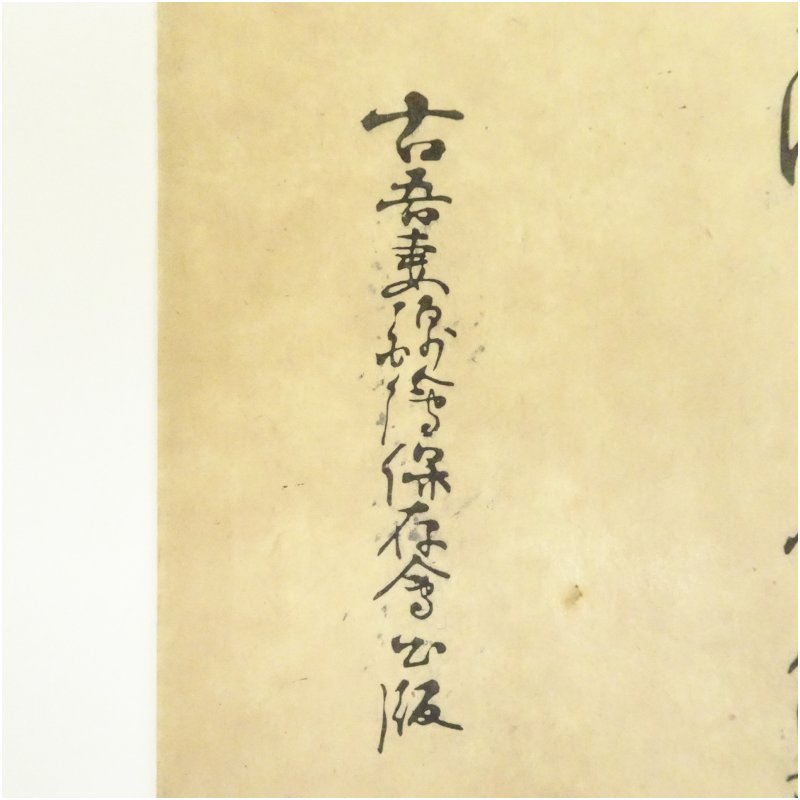 古吾妻錦繪保存會出版